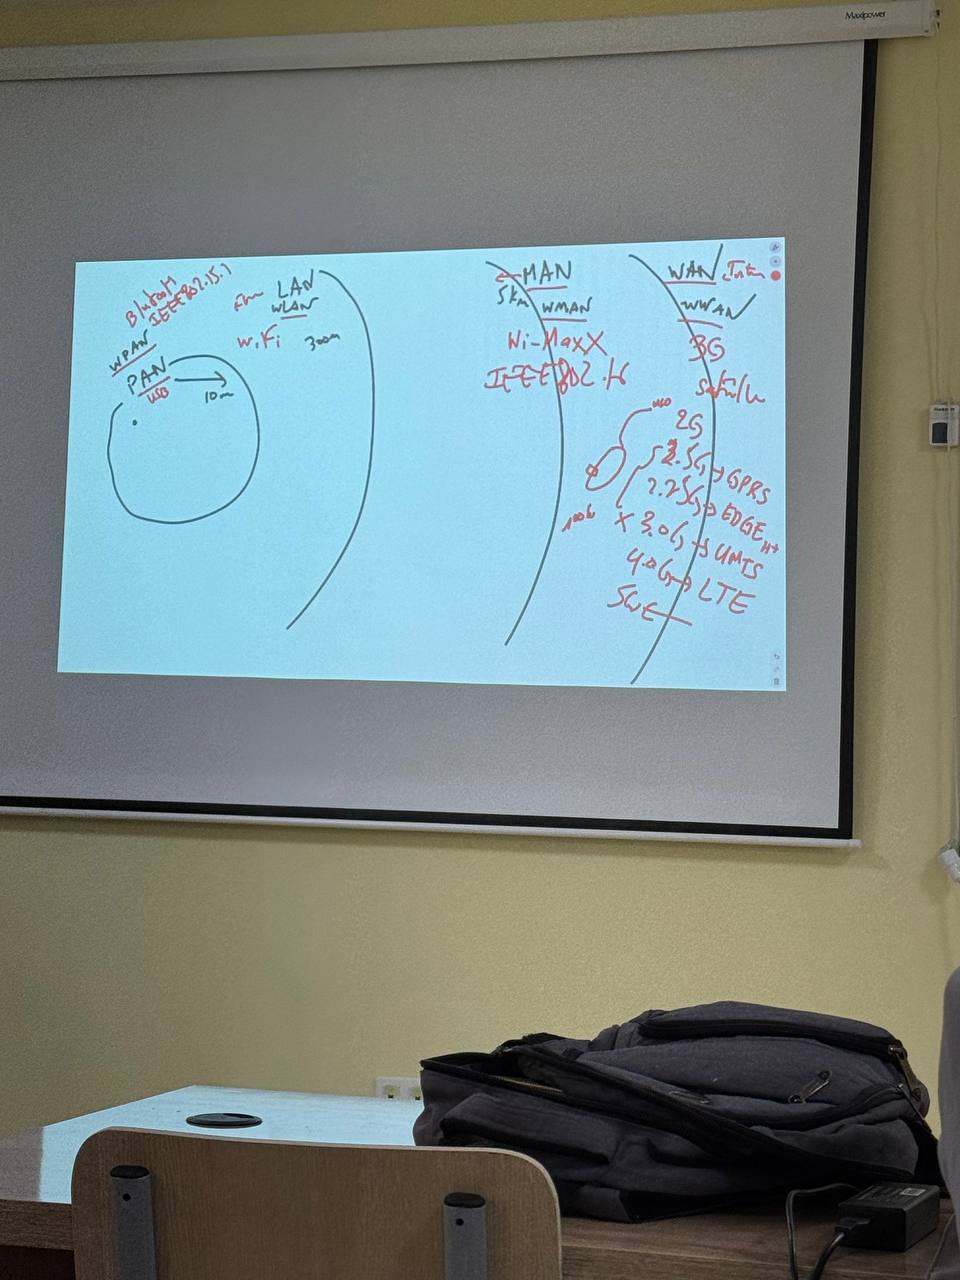 Maxipower
Blutooth
IEEE 802.15.1
WPAN
PAN
USB
10m
LAN
WLAN
WiFi
300m
MAN
5km
WMAN
Wi-MaxX
IEEE 802.16
WAN
WWAN
3G
2G
2.5G → GPRS
2.75G → EDGE
H+
3.0G → UMTS
4.0G → LTE
5G